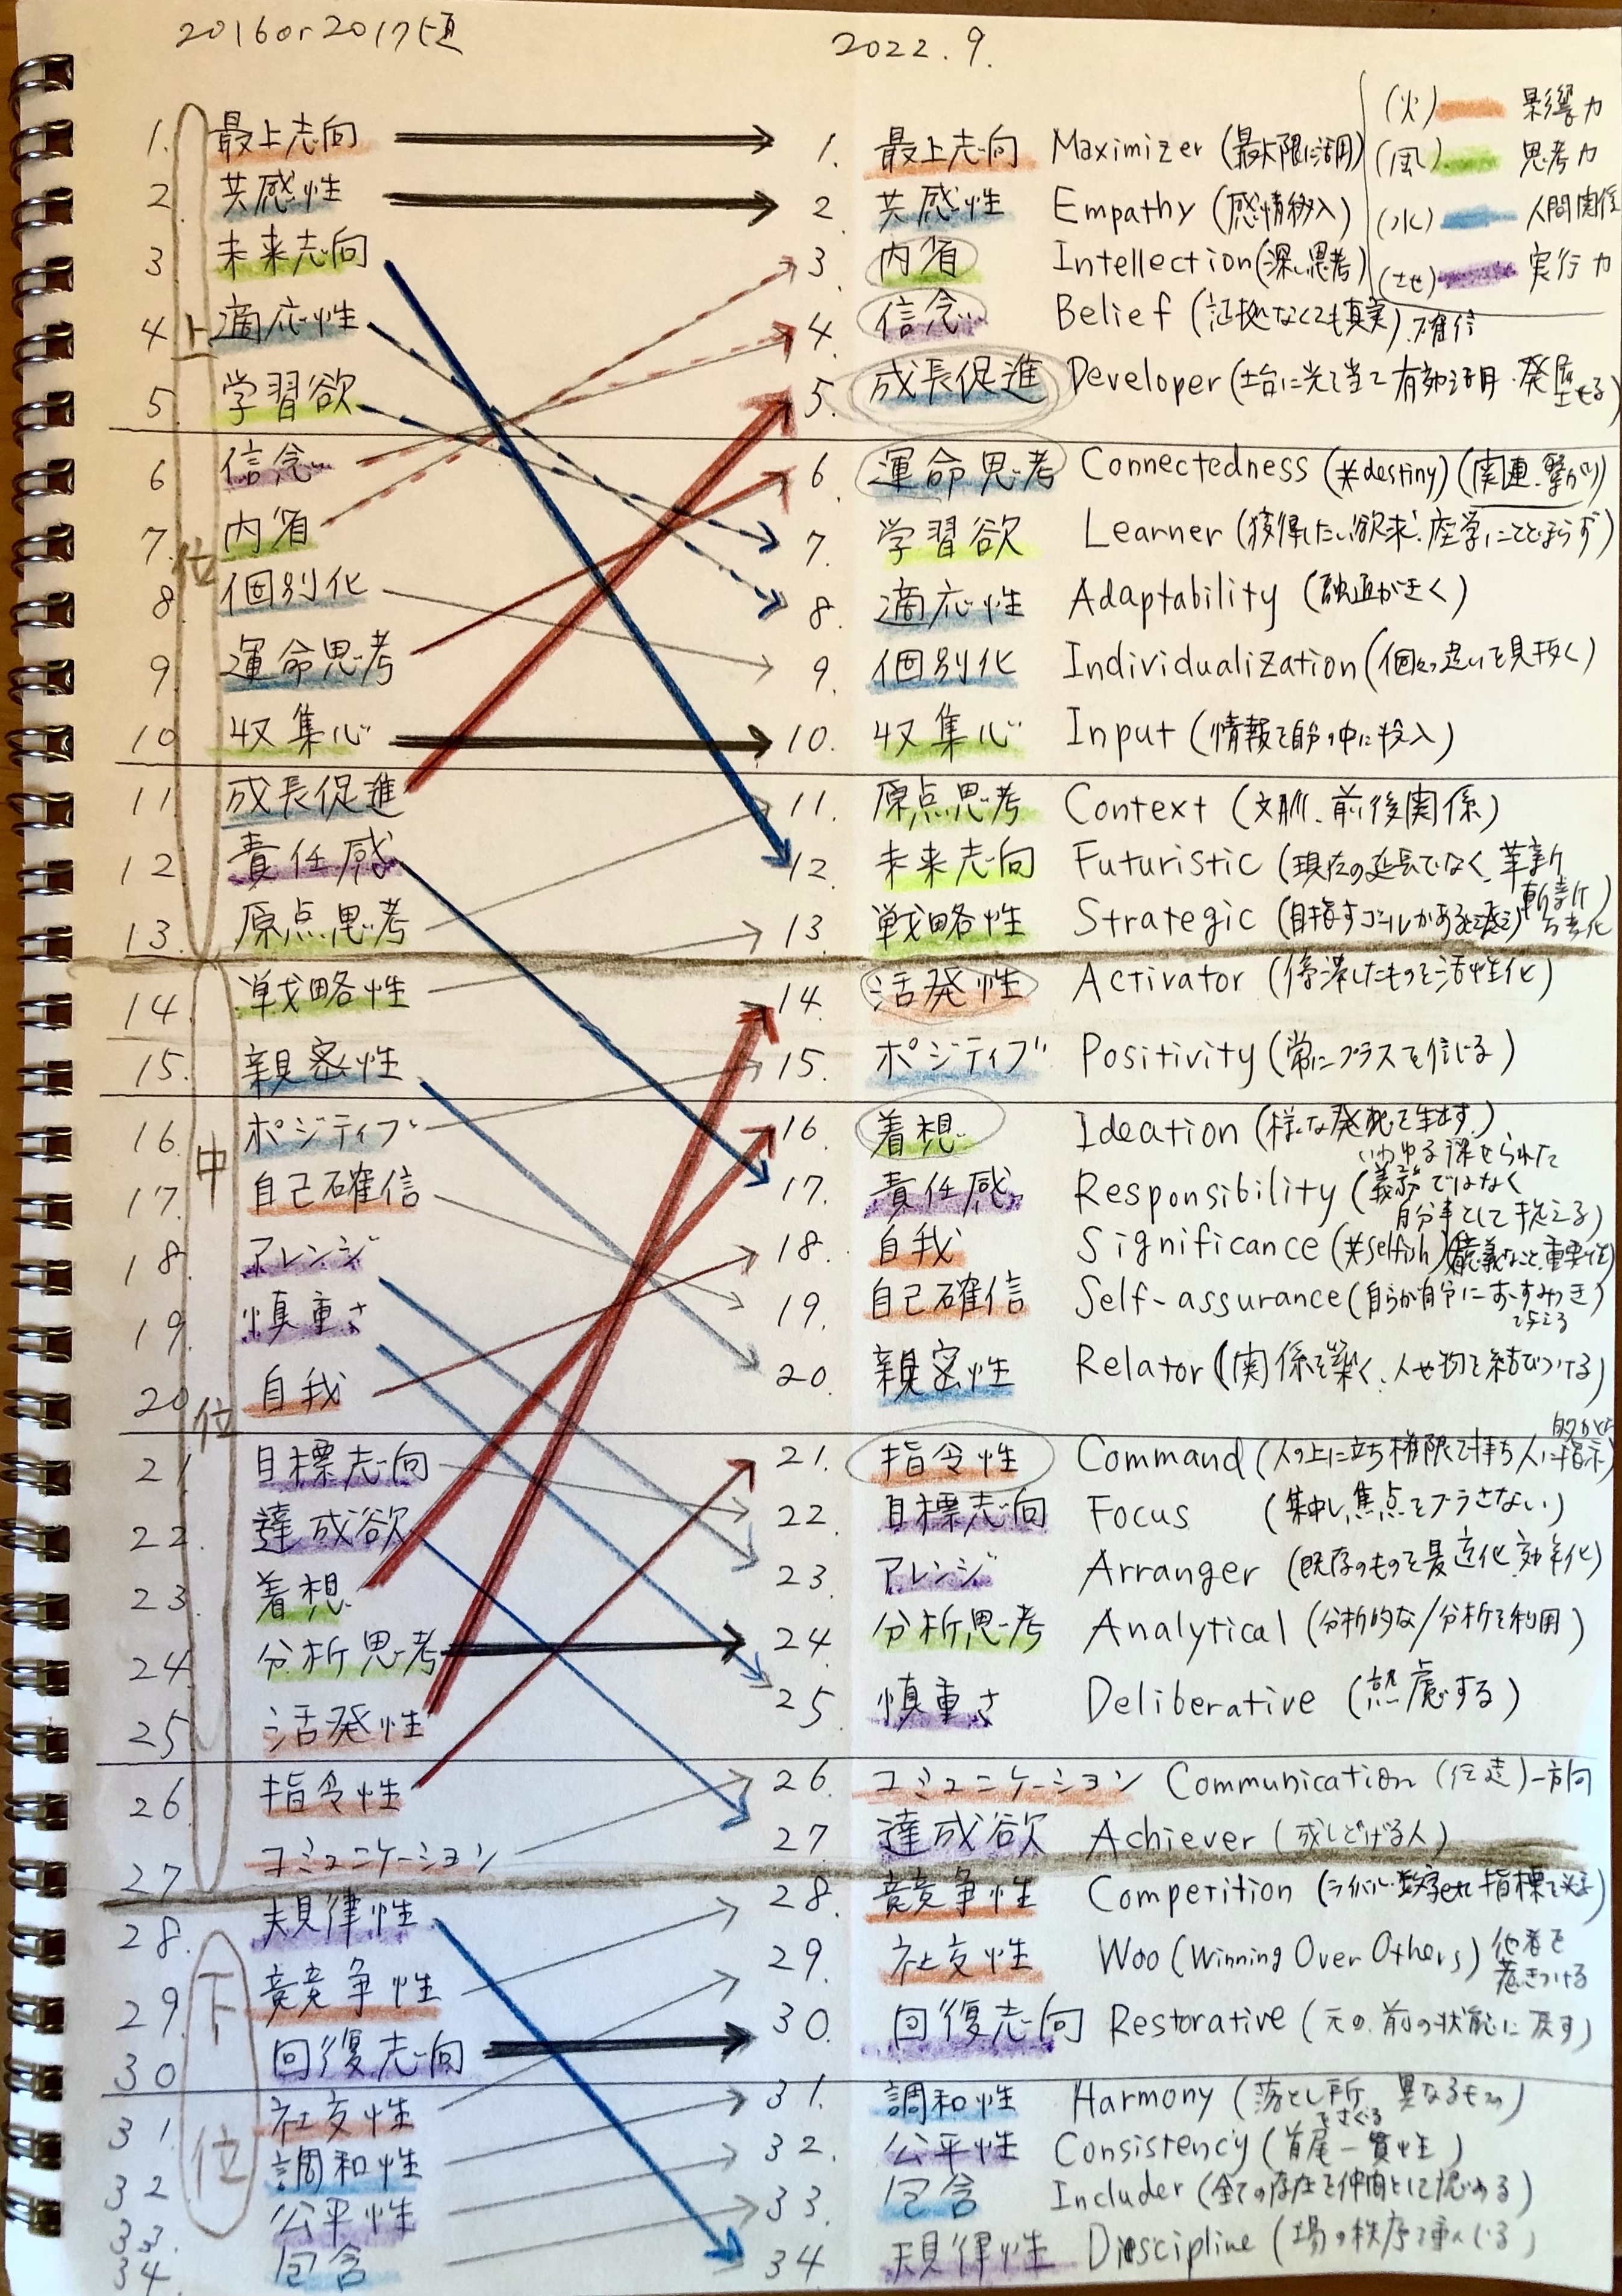 2016or2017頃
2022.9.
(火) 影響力
(風) 思考力
(水) 人間関係
実行力
上位
中位
下位
1. 最上志向
2. 共感性
3. 未来志向
4. 適応性
5. 学習欲
6 信念
7. 内省
8 個別化
9. 運命思考
10 収集心
11. 成長促進
12 責任感
13. 原点思考
14. 戦略性
15. 親密性
16. ポジティブ
17. 自己確信
18. アレンジ
19. 慎重さ
20 自我
21 目標志向
22. 達成欲
23. 着想
24. 分析思考
25 活発性
26 指令性
27 コミュニケーション
28. 規律性
29. 競争性
30 回復志向
31. 社交性
32 調和性
33. 公平性
34. 包含
1. 最上志向 Maximizer (最大限に活用)
2 共感性 Empathy (感情移入)
3. 内省 Intellection (深い思考)
4. 信念 Belief (証拠なくても真実). 確信
5. 成長促進 Developer (土台に光て当て 有効活用・発展させる)
6. 運命思考 Connectedness (※destiny) (関連. 繋がり)
7. 学習欲 Learner (獲得したい欲求. 座学にとどまらず)
8. 適応性 Adaptability (融通がきく)
9. 個別化 Individualization (個々の違いを見抜く)
10. 収集心 Input (情報を自分の中に投入)
11. 原点思考 Context (文脈、前後関係)
12. 未来志向 Futuristic (現在の延長でなく、革新
斬新
13. 戦略性 Strategic (目指すゴールがあると
14. 活発性 Activator (停滞したものを活性化)
15. ポジティブ Positivity (常にプラスを信じる)
16. 着想 Ideation (様々な発想を生む.)
いわゆる課せられた
17. 責任感 Responsibility (義務ではなく
自分事として捉える)
18. 自我 Significance (※selfish)
19. 自己確信 Self-assurance (自らが自分におすみつき
を与える
20. 親密性 Relator (関係を築く、人や物を結びつける)
21. 指令性 Command (人の上に立ち権限を持ち人に指示)
22. 目標志向 Focus (集中し、焦点をブラさない)
23. アレンジ Arranger (既存のものを最適化、効率化)
24. 分析思考 Analytical (分析的な/分析を利用)
25 慎重さ Deliberative (熟慮する)
26. コミュニケーション Communication (伝達) 一方向
27. 達成欲 Achiever (成しとげる人)
28. 競争性 Competition (ライバル・数字etc 指標を
29. 社交性 Woo (Winning Over Others) 他者を
巻きつける
30. 回復志向 Restorative (元の、前の状態に戻す)
31. 調和性 Harmony (落とし所 異なるもの)
をさぐる
32. 公平性 Consistency (首尾一貫性)
33. 包含 Includer (全ての存在を仲間として認める)
34 規律性 Diescipline (場の秩序を重んじる)